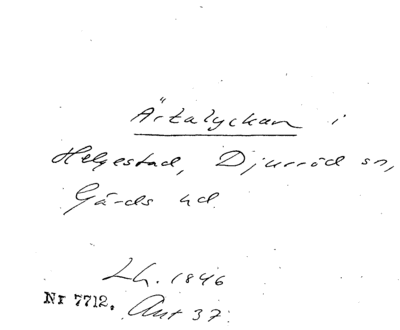 Ärtalyckan i
Helgestad, Djurröd sn,
Gärds hd.
Lh. 1846
Nr 7712. Ant 37.